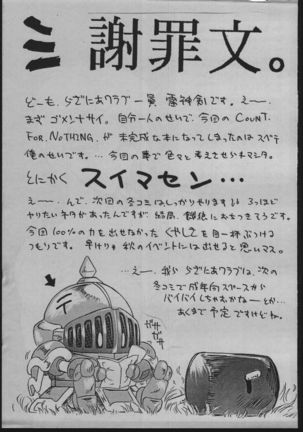 謝罪文。
どーも、らぢにあクラブ一員 雷神剣です。えー…
まず ゴメンナサイ。自分一人のせいで、今回の COUNT.
FOR.NOTHING. が 未完成な本になってしまったのは スベテ
僕のせいです。… 今回の事で色々と考えさせられマシタ。
とにかく スイマセン…
えー…んで、次回の冬コミはしっかりやります!! 3つほど
やりたいネタがあったんですが 結局、 におちつきそうです。
今回 100%の力を出せなかった くやしさを目一杯ぶつける
つもりです。早けりゃ 秋のイベントには出せると思いマス。
…えー、我ら らぢにあクラブは、次の
冬コミで 成年向スペースから
バイバイしちゃおかなーとか…
あくまで予定ですけどね。
ガサガサ